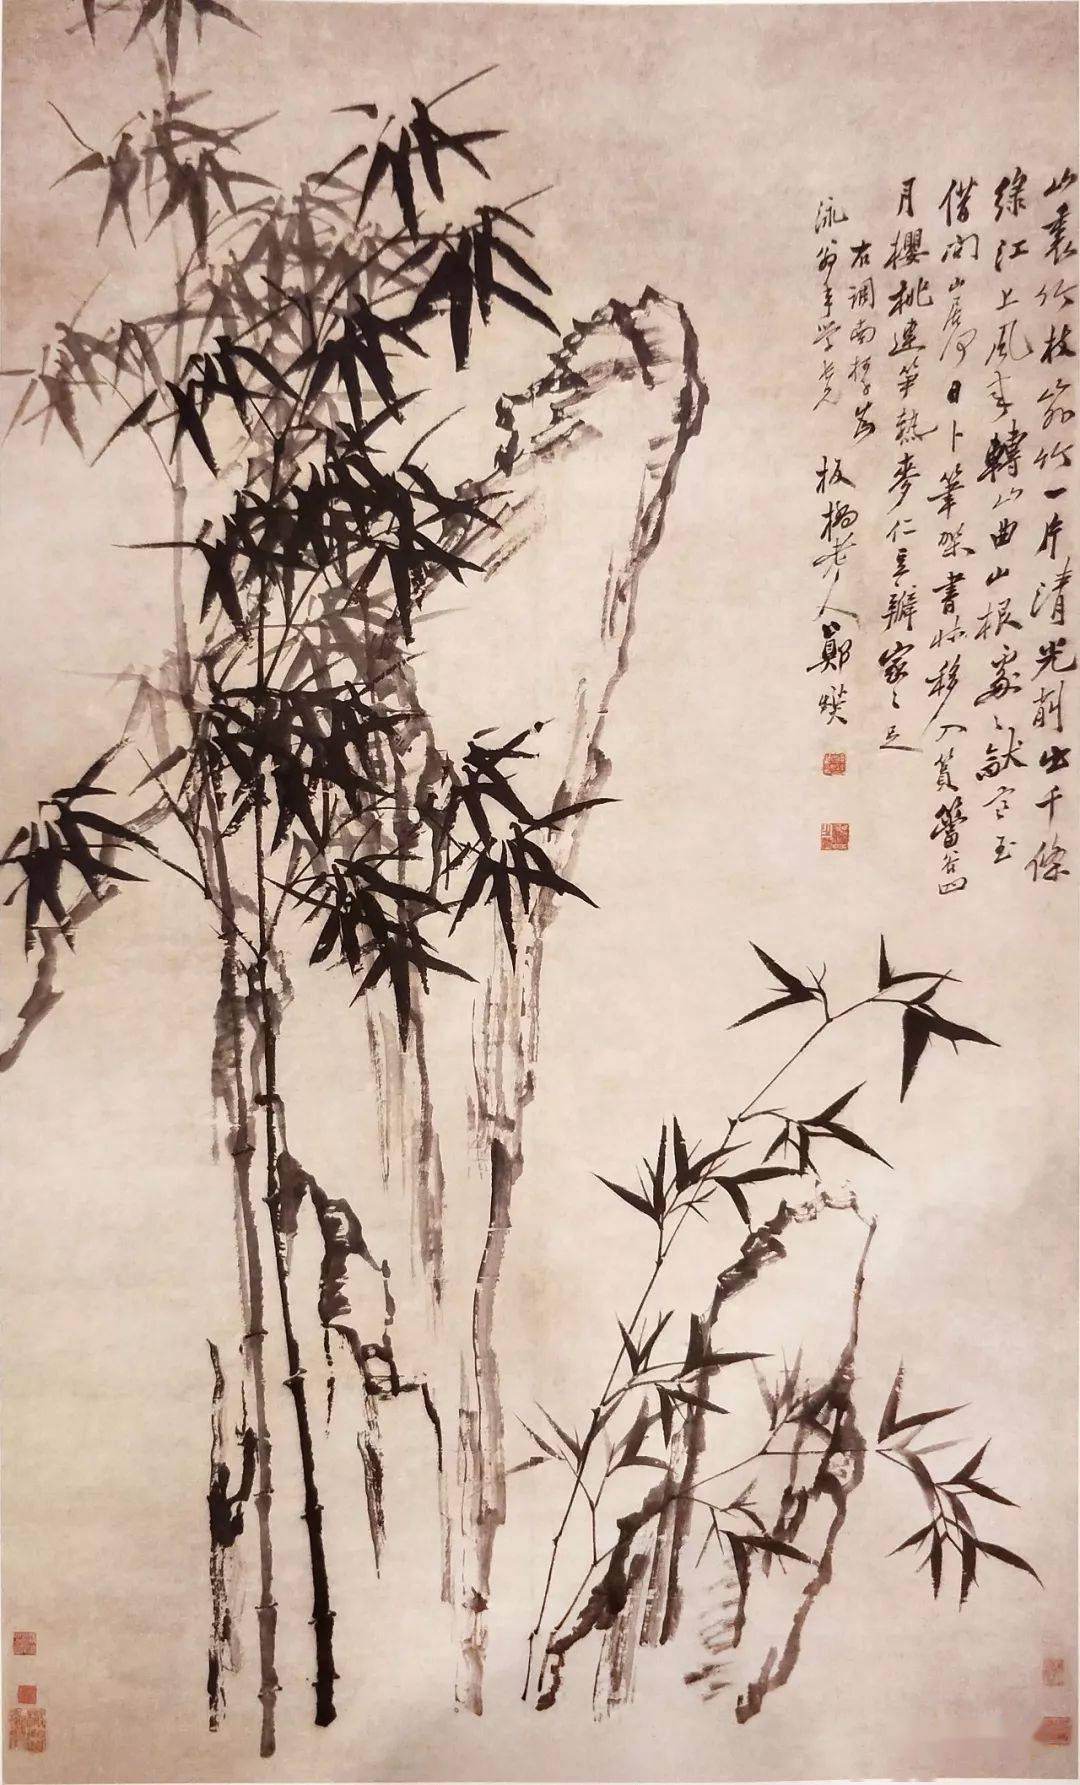 山裏竹枝竹一片清光削出千條
綠江上風來轉山曲山根處〻玉
借問山居何日卜筆架書牀移入篔簹谷四
月櫻桃連筍熟麥仁豆瓣家〻足
右調南
泳翁年學老兄 板橋老人鄭燮